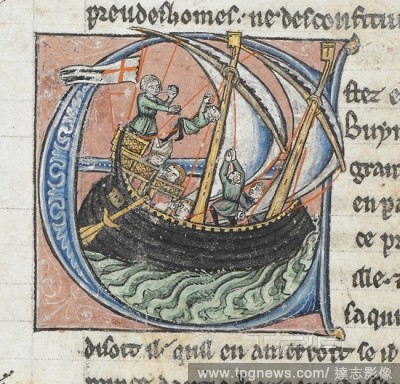 preudeshomes. ne desconfitu
stez e
Buyn
gran
en pa
ce pr
ille. t
sa qui
disoit il. quil en ameroit se il
www.fpgnews.com | 達志影像